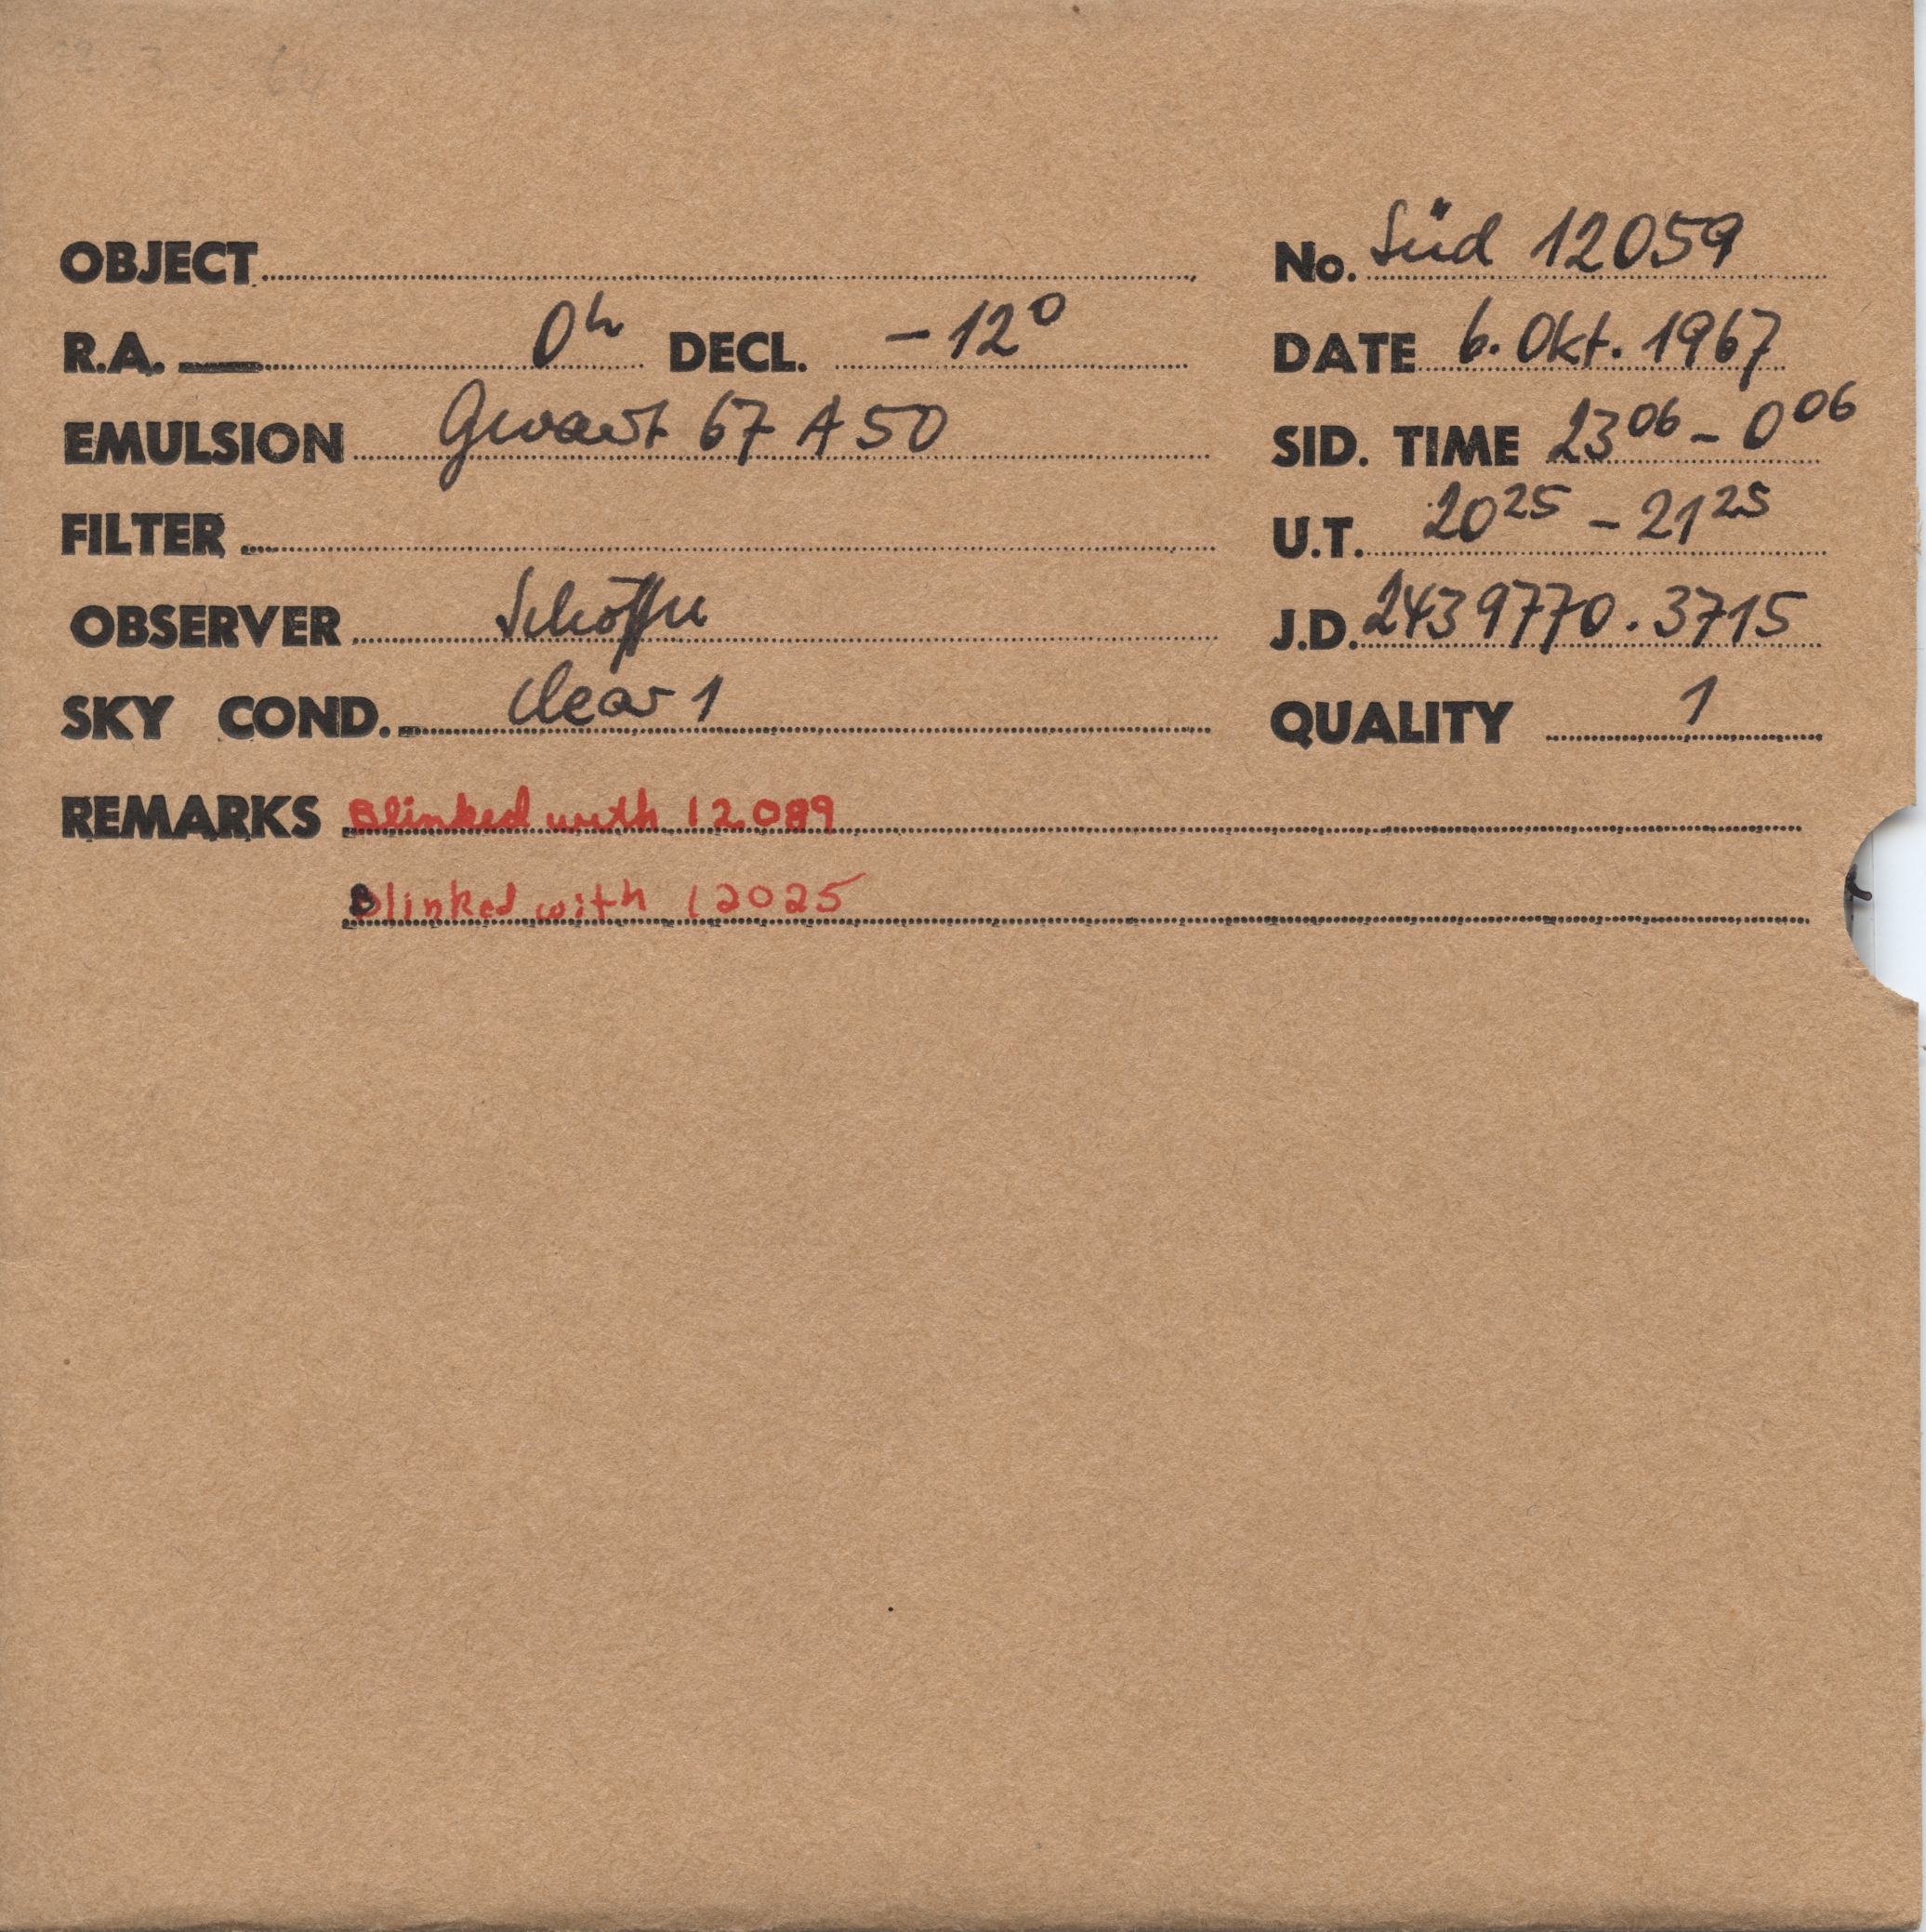 OBJECT No. Süd 12059
R.A. 0h DECL. -12°
DATE 6. Okt. 1967
EMULSION Gevaert 67 A 50
SID. TIME 23 06 - 0 06
FILTER
U.T. 20 25 - 21 25
OBSERVER
J.D. 2439770.3715
SKY COND. clear 1
QUALITY 1
REMARKS Blinked with 12089
Blinked with 12025